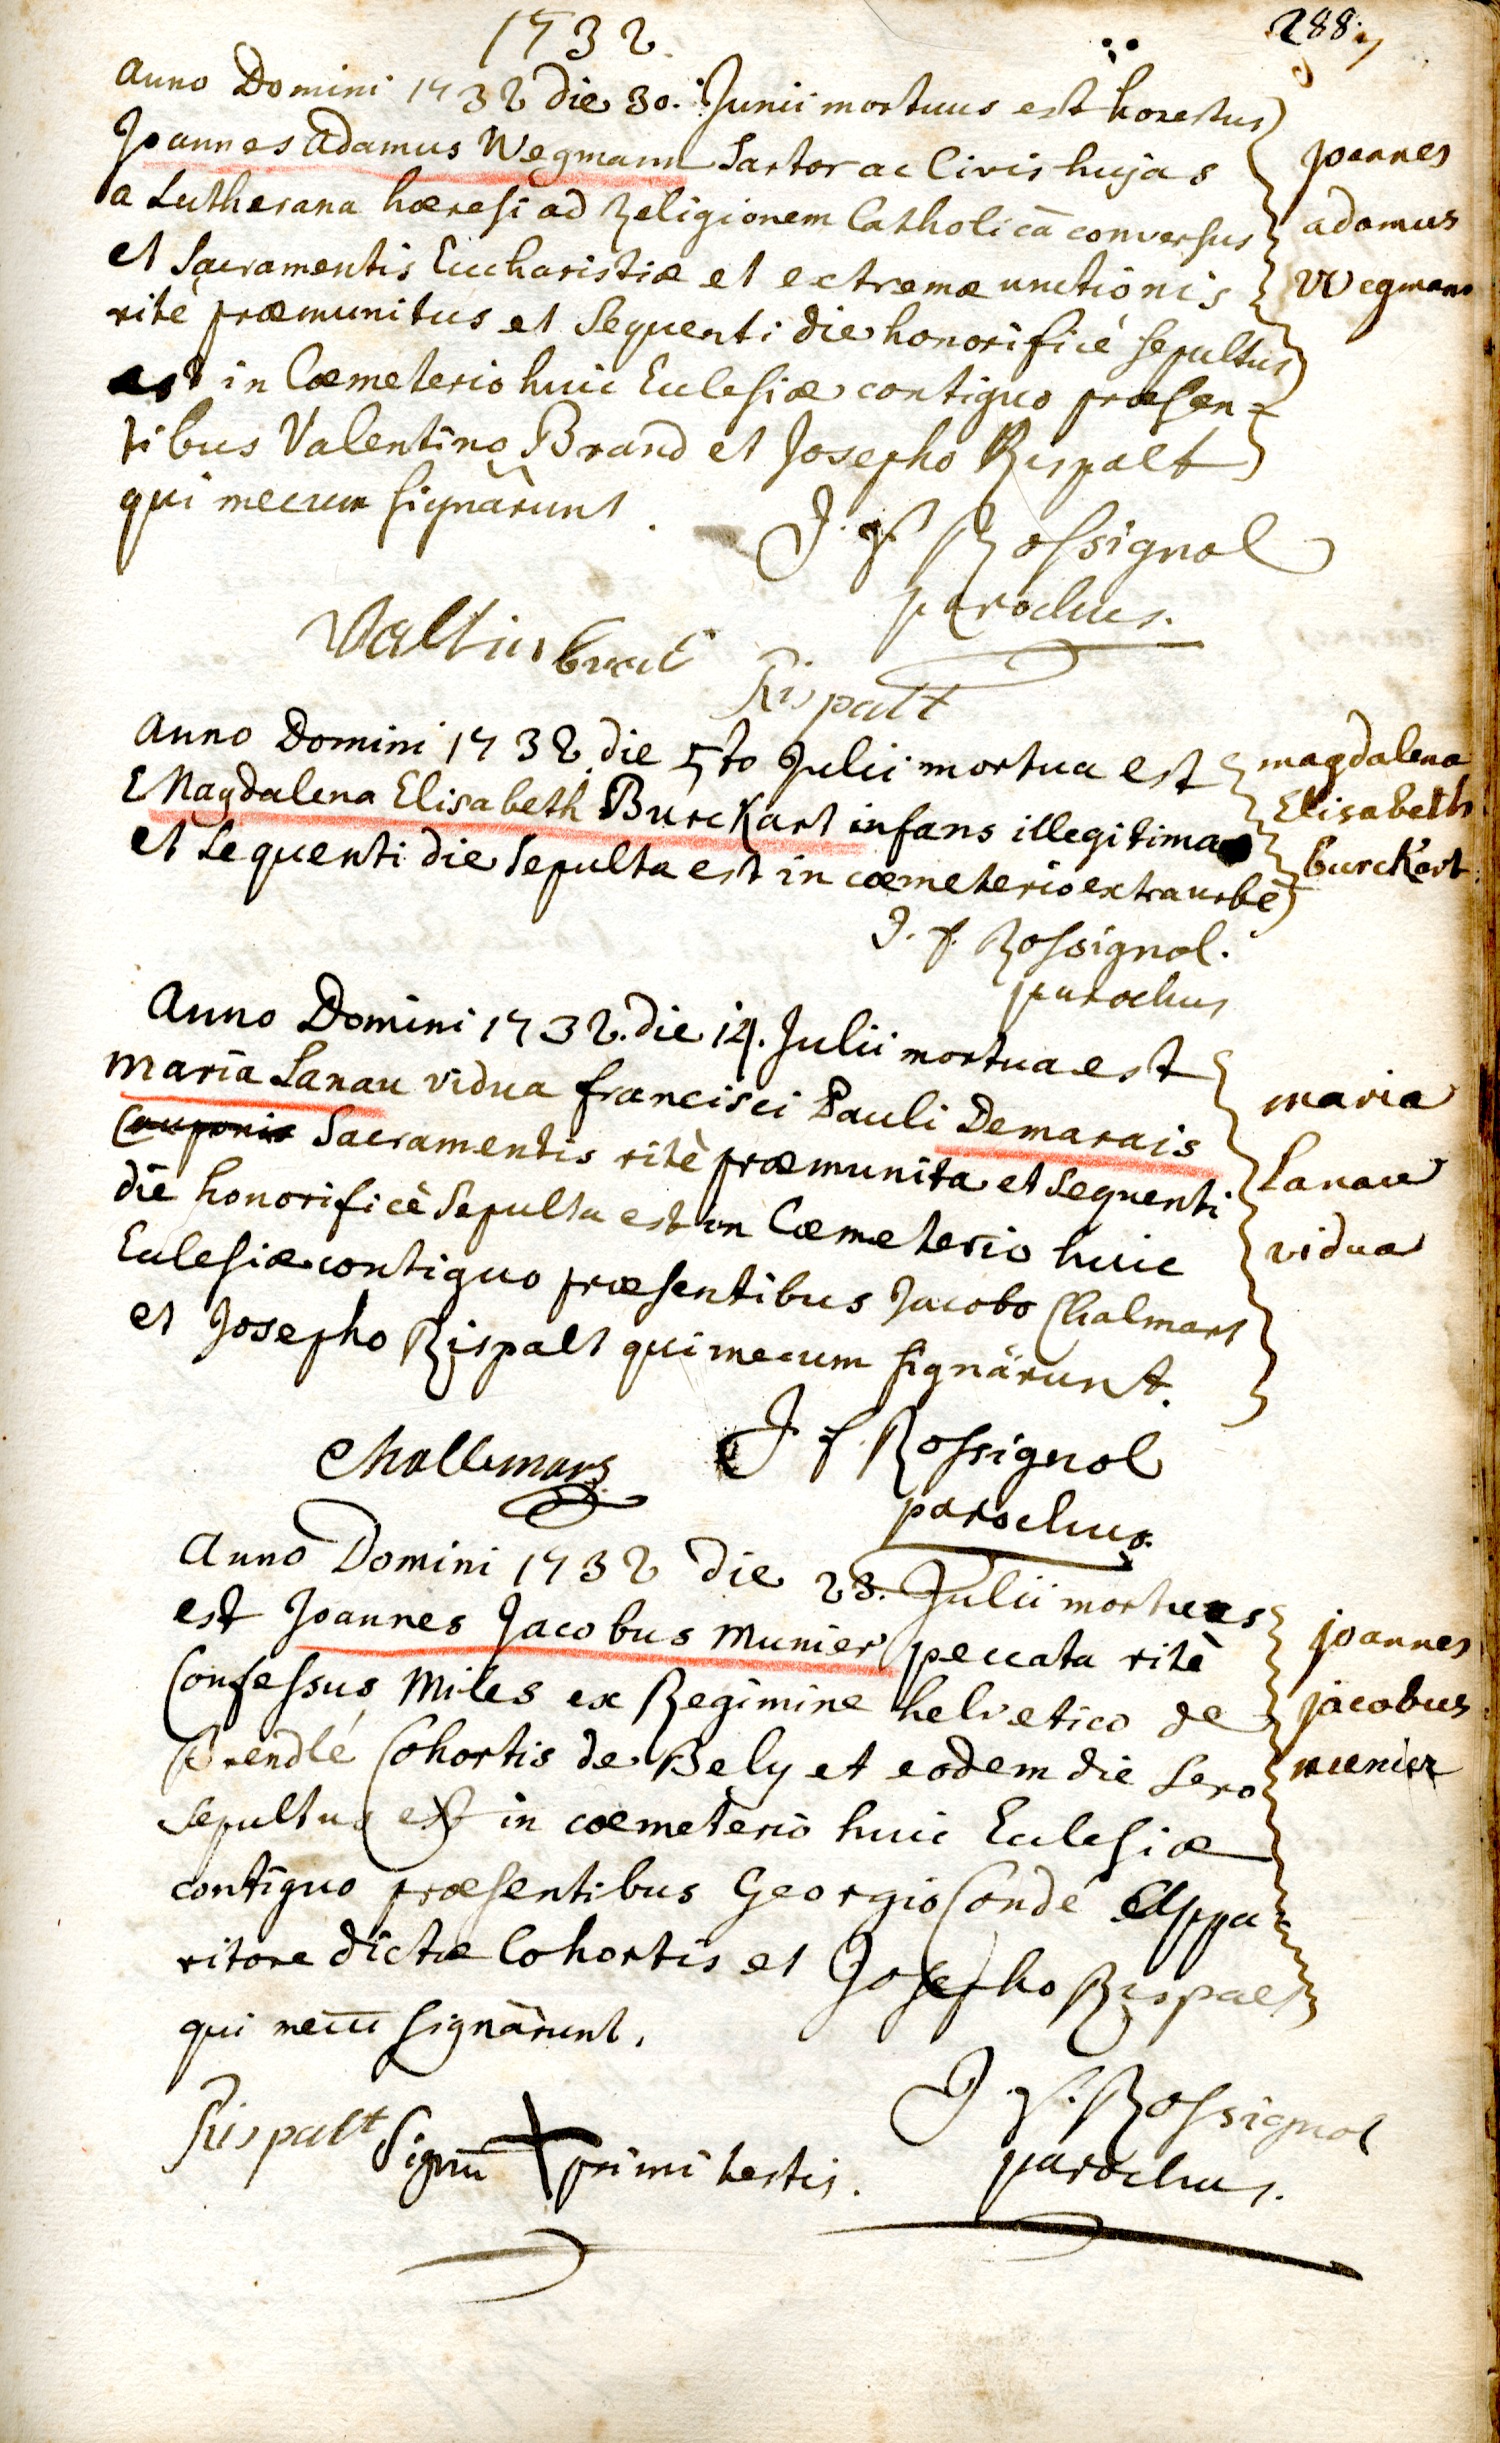 1732.
288.
Anno Domini 1732 die 30. Junii mortuus est honestus
Joannes Adamus Wegmann Sartor ac Civis hujas
a Lutherana hæresi ad Religionem Catholicā conversus
et Sacramentis Eucharistiæ et extremæ unctionis
ritè præmunitus et Sequenti die honorificè sepultus
est in Cœmeterio huic Ecclesiæ contiguo præsen=
tibus Valentino Brand et Josepho Rispalt
qui mecum signârunt.
Joannes
adamus
Wegmann
J. f. Rossignol
parochus.
Valtin brant
Rispalt
Anno Domini 1732 die 5to Julii mortua est
Magdalena Elisabeth Burckart infans illegitima
et Sequenti die Sepulta est in cœmeterio extra urbē
magdalena
Elisabeth
burckart.
J. f. Rossignol.
parochus
Anno Domini 1732. die 14. Julii mortua est
Maria Lanau vidua francisci Pauli Demarais
Cauponis Sacramentis ritè præmunita et sequenti
die honorificè Sepulta est in Cœmeterio huic
Ecclesiæ contiguo præsentibus Jacobo Chalmart
et Josepho Rispalt qui mecum signârunt.
maria
Lanau
vidua
Challemars
J f. Rossignol
parochus.
Anno Domini 1732 die 23. Julii mortuus
est Joannes Jacobus Munier peccata ritè
Confessus Miles ex Regimine helvetico de
Brendlé Cohortis de Bely et eodem die Sero
sepultus est in cœmeterio huic Ecclesiæ
contiguo præsentibus Georgio Condé Appa
ritore dictæ Cohortis et Josepho Rispalt
qui mecū signârunt.
joannes
jacobus
munier
Rispalt Signū + primi testis.
J. f. Rossignol
parochus.